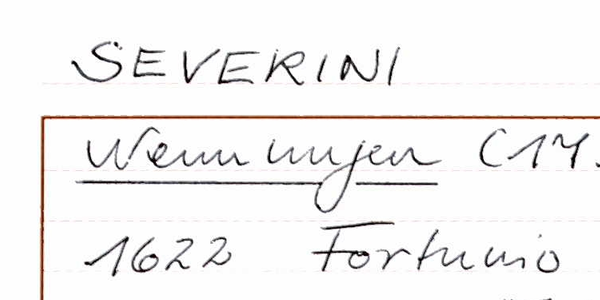 SEVERINI
Wenningen (17.
1622 Fortunio